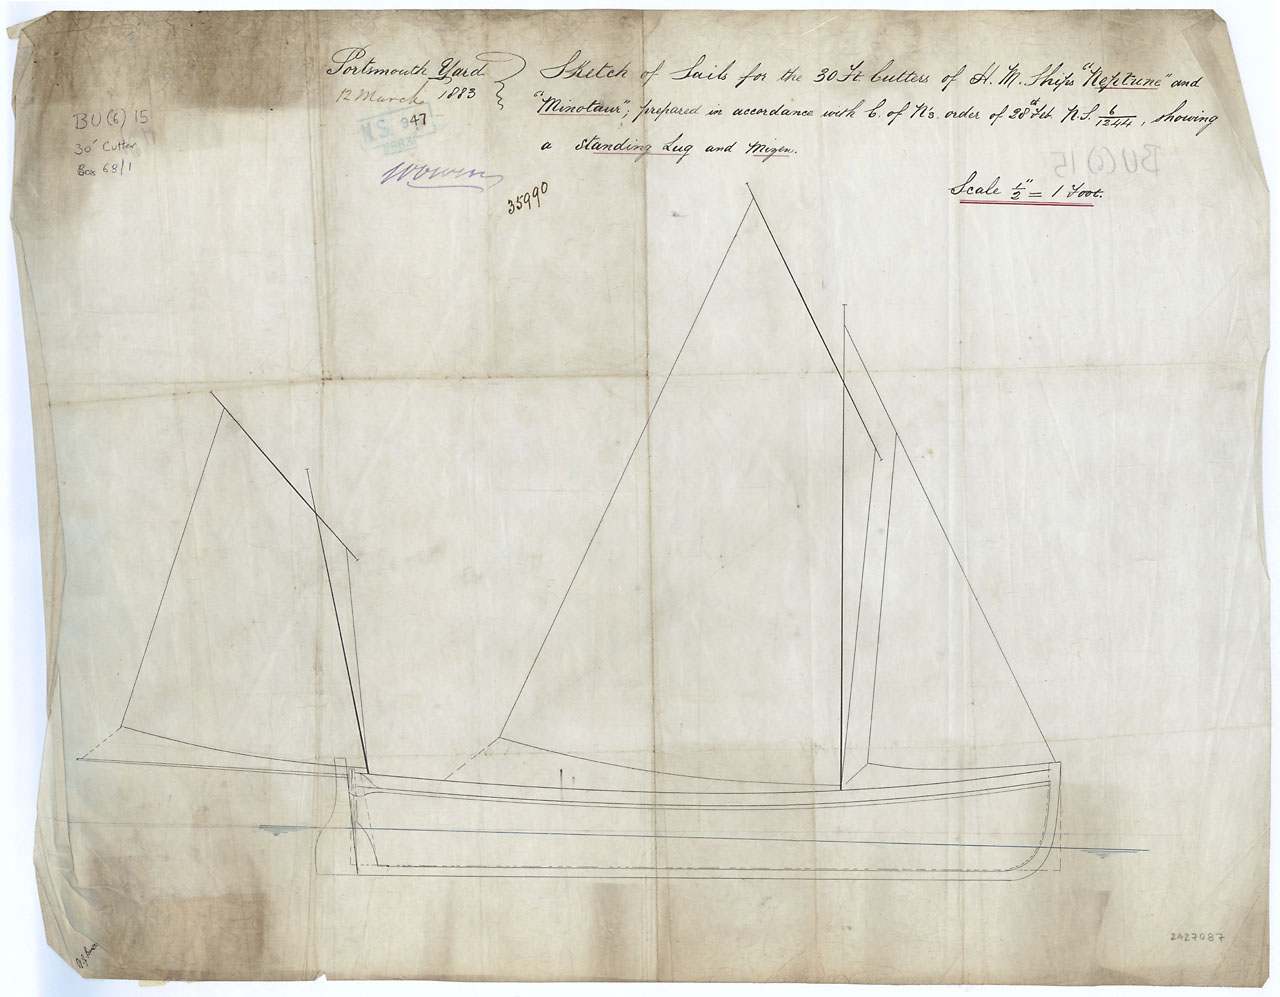 Portsmouth Yard
12 March 1883
Sketch of Sails for the 30 Ft Cutters of H. M. Ships "Neptune" and
"Minotaur", prepared in accordance with C. of N's. order of 28th Feb N.S. 6/1244, showing
a standing Lug and Mizen.
Scale 1/2" = 1 Foot.
BU(6) 15
30' Cutter
Box 68/1
N.S. 47
1883
35990
BU(6) 15
2A27087